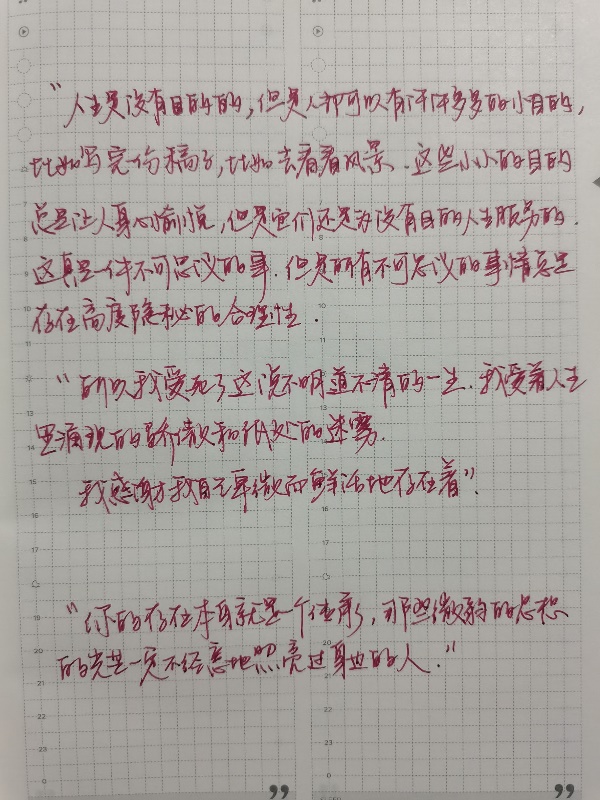 “人生是没有目的的，但是人都可以有许许多多的小目的，
比如写完一份稿子，比如去看看风景．这些小小的目的
总是让人身心愉悦，但是它们还是为没有目的人生服务的．
这真是一件不可思议的事．但是所有不可思议的事情总是
存在高度隐秘的合理性．
“所以我爱死了这说不明道不清的一生．我爱着人生
里涌现的骄傲和低处的迷雾．
我感谢我自己卑微而鲜活地存在着”．
“你的存在本身就是一个传承，那些微弱的思想
的光芒一定不经意地照亮过身边的人．”